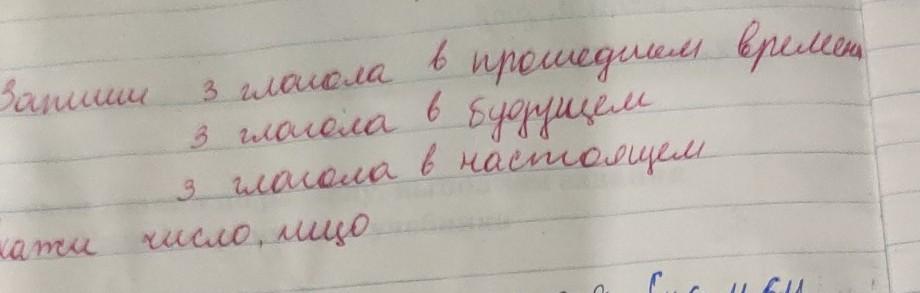 Запиши 3 глагола в прошедшем времени
3 глагола в будущем
3 глагола в настоящем
кажи число, лицо